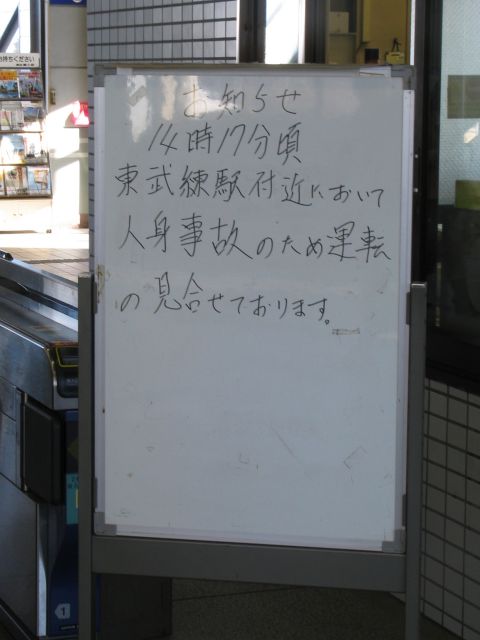 お持ちください
お知らせ
14時17分頃
東武練駅付近において
人身事故のため運転
の見合せております。
1